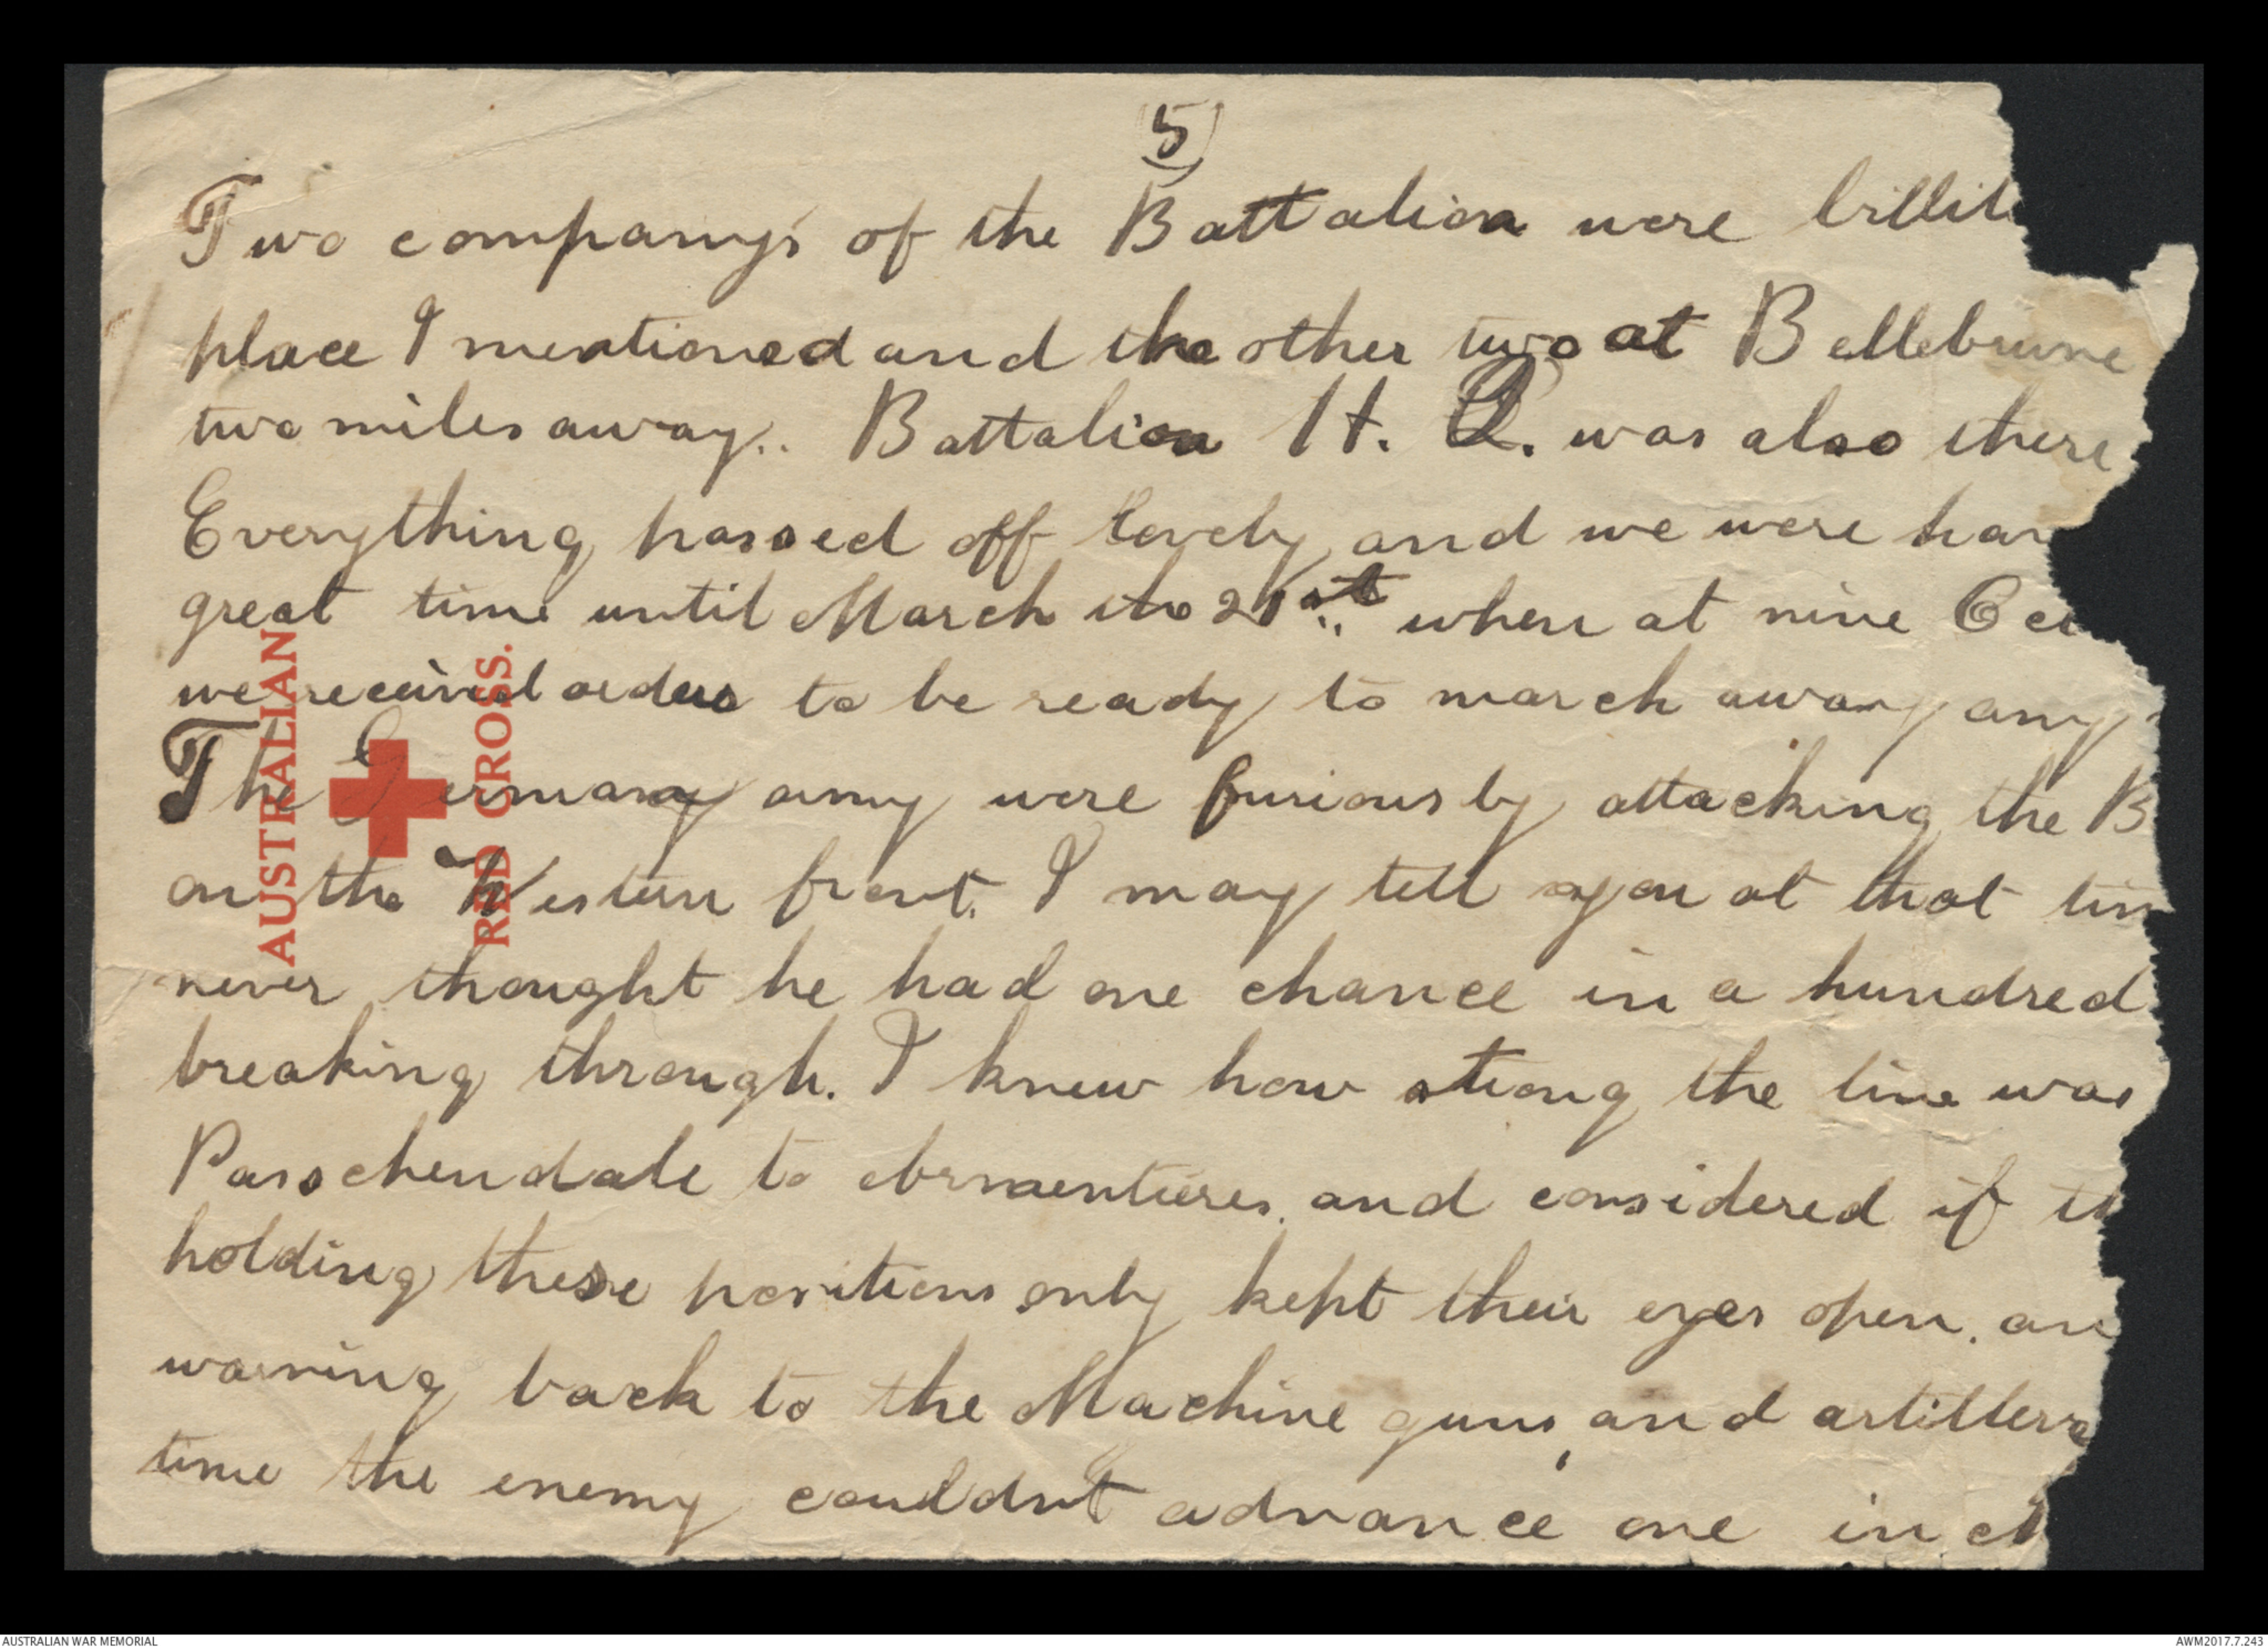 (5)
Two company's of the Battalion were billit
place I mentioned and the other two at Bellebrune
two miles away.. Battalion H. Q. was also there
Everything passed off lovely, and we were hav
great time until March the 21st.. when at nine Oc
we received orders to be ready to march away any
The Germany army were furiously attacking the B
on the Western front. I may tell you at that tim
never thought he had one chance in a hundred
breaking through. I knew how strong the line was
Passchendale to Armentieres. and considered if th
holding these positions only kept their eyes open. an
warning back to the Machine guns, and artillery
time the enemy couldn't advance one inch
AUSTRALIAN
RED CROSS.
AUSTRALIAN WAR MEMORIAL
AWM2017.7.243